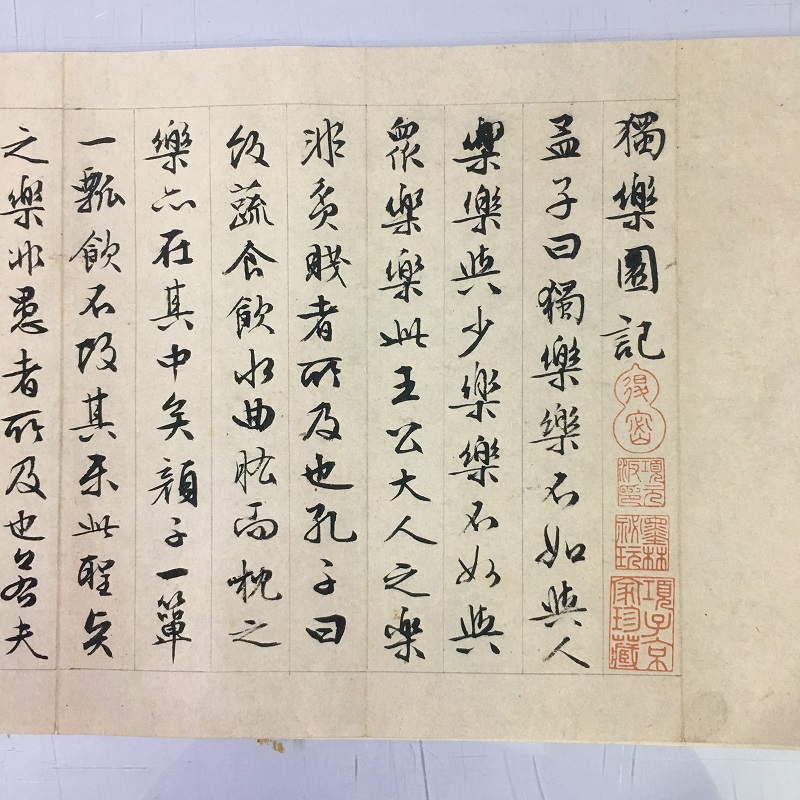 獨樂園記
退密
項元汴印
墨林秘玩
項子京家珍藏
孟子曰獨樂樂不如與人
樂樂與少樂樂不如與
衆樂樂此王公大人之樂
非貧賤者所及也孔子曰
飯蔬食飲水曲肱而枕之
樂亦在其中矣顔子一簞
一瓢飲不改其樂此聖賢
之樂非愚者所及也若夫